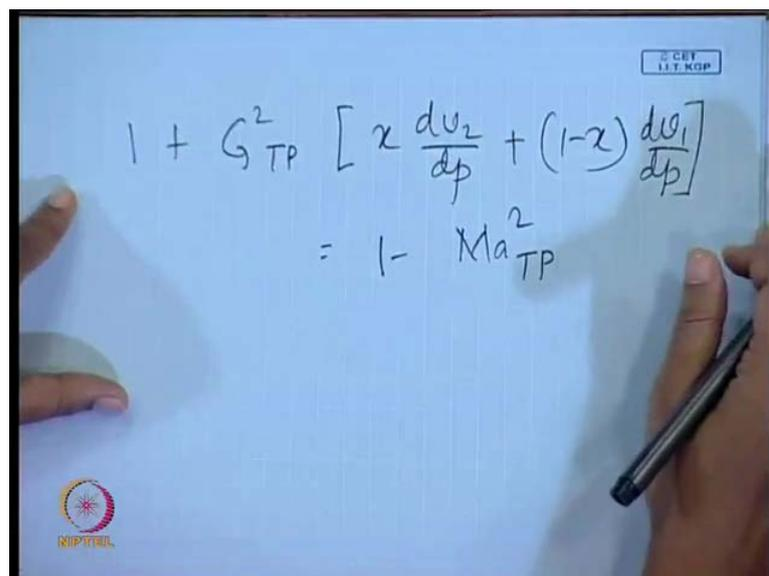 © CET
I.I.T. KGP
1 + G²_TP [ x dv₂/dp + (1-x) dv₁/dp ]
= 1 - Ma²_TP
NPTEL